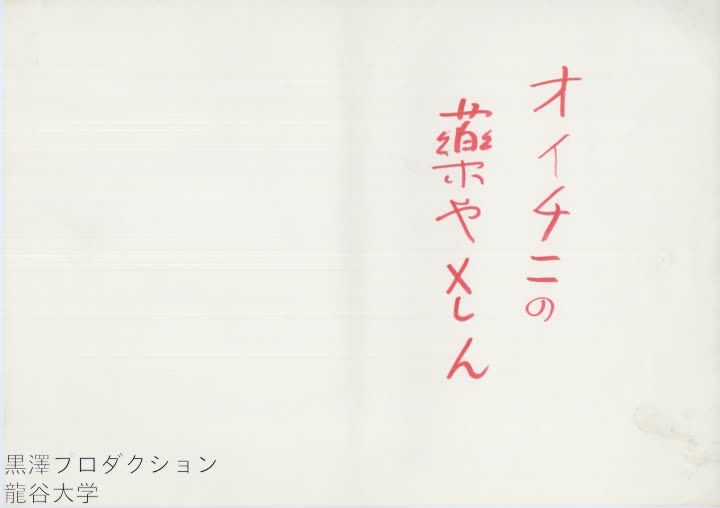 オイチニの
藥やさん
黒澤プロダクション
龍谷大学